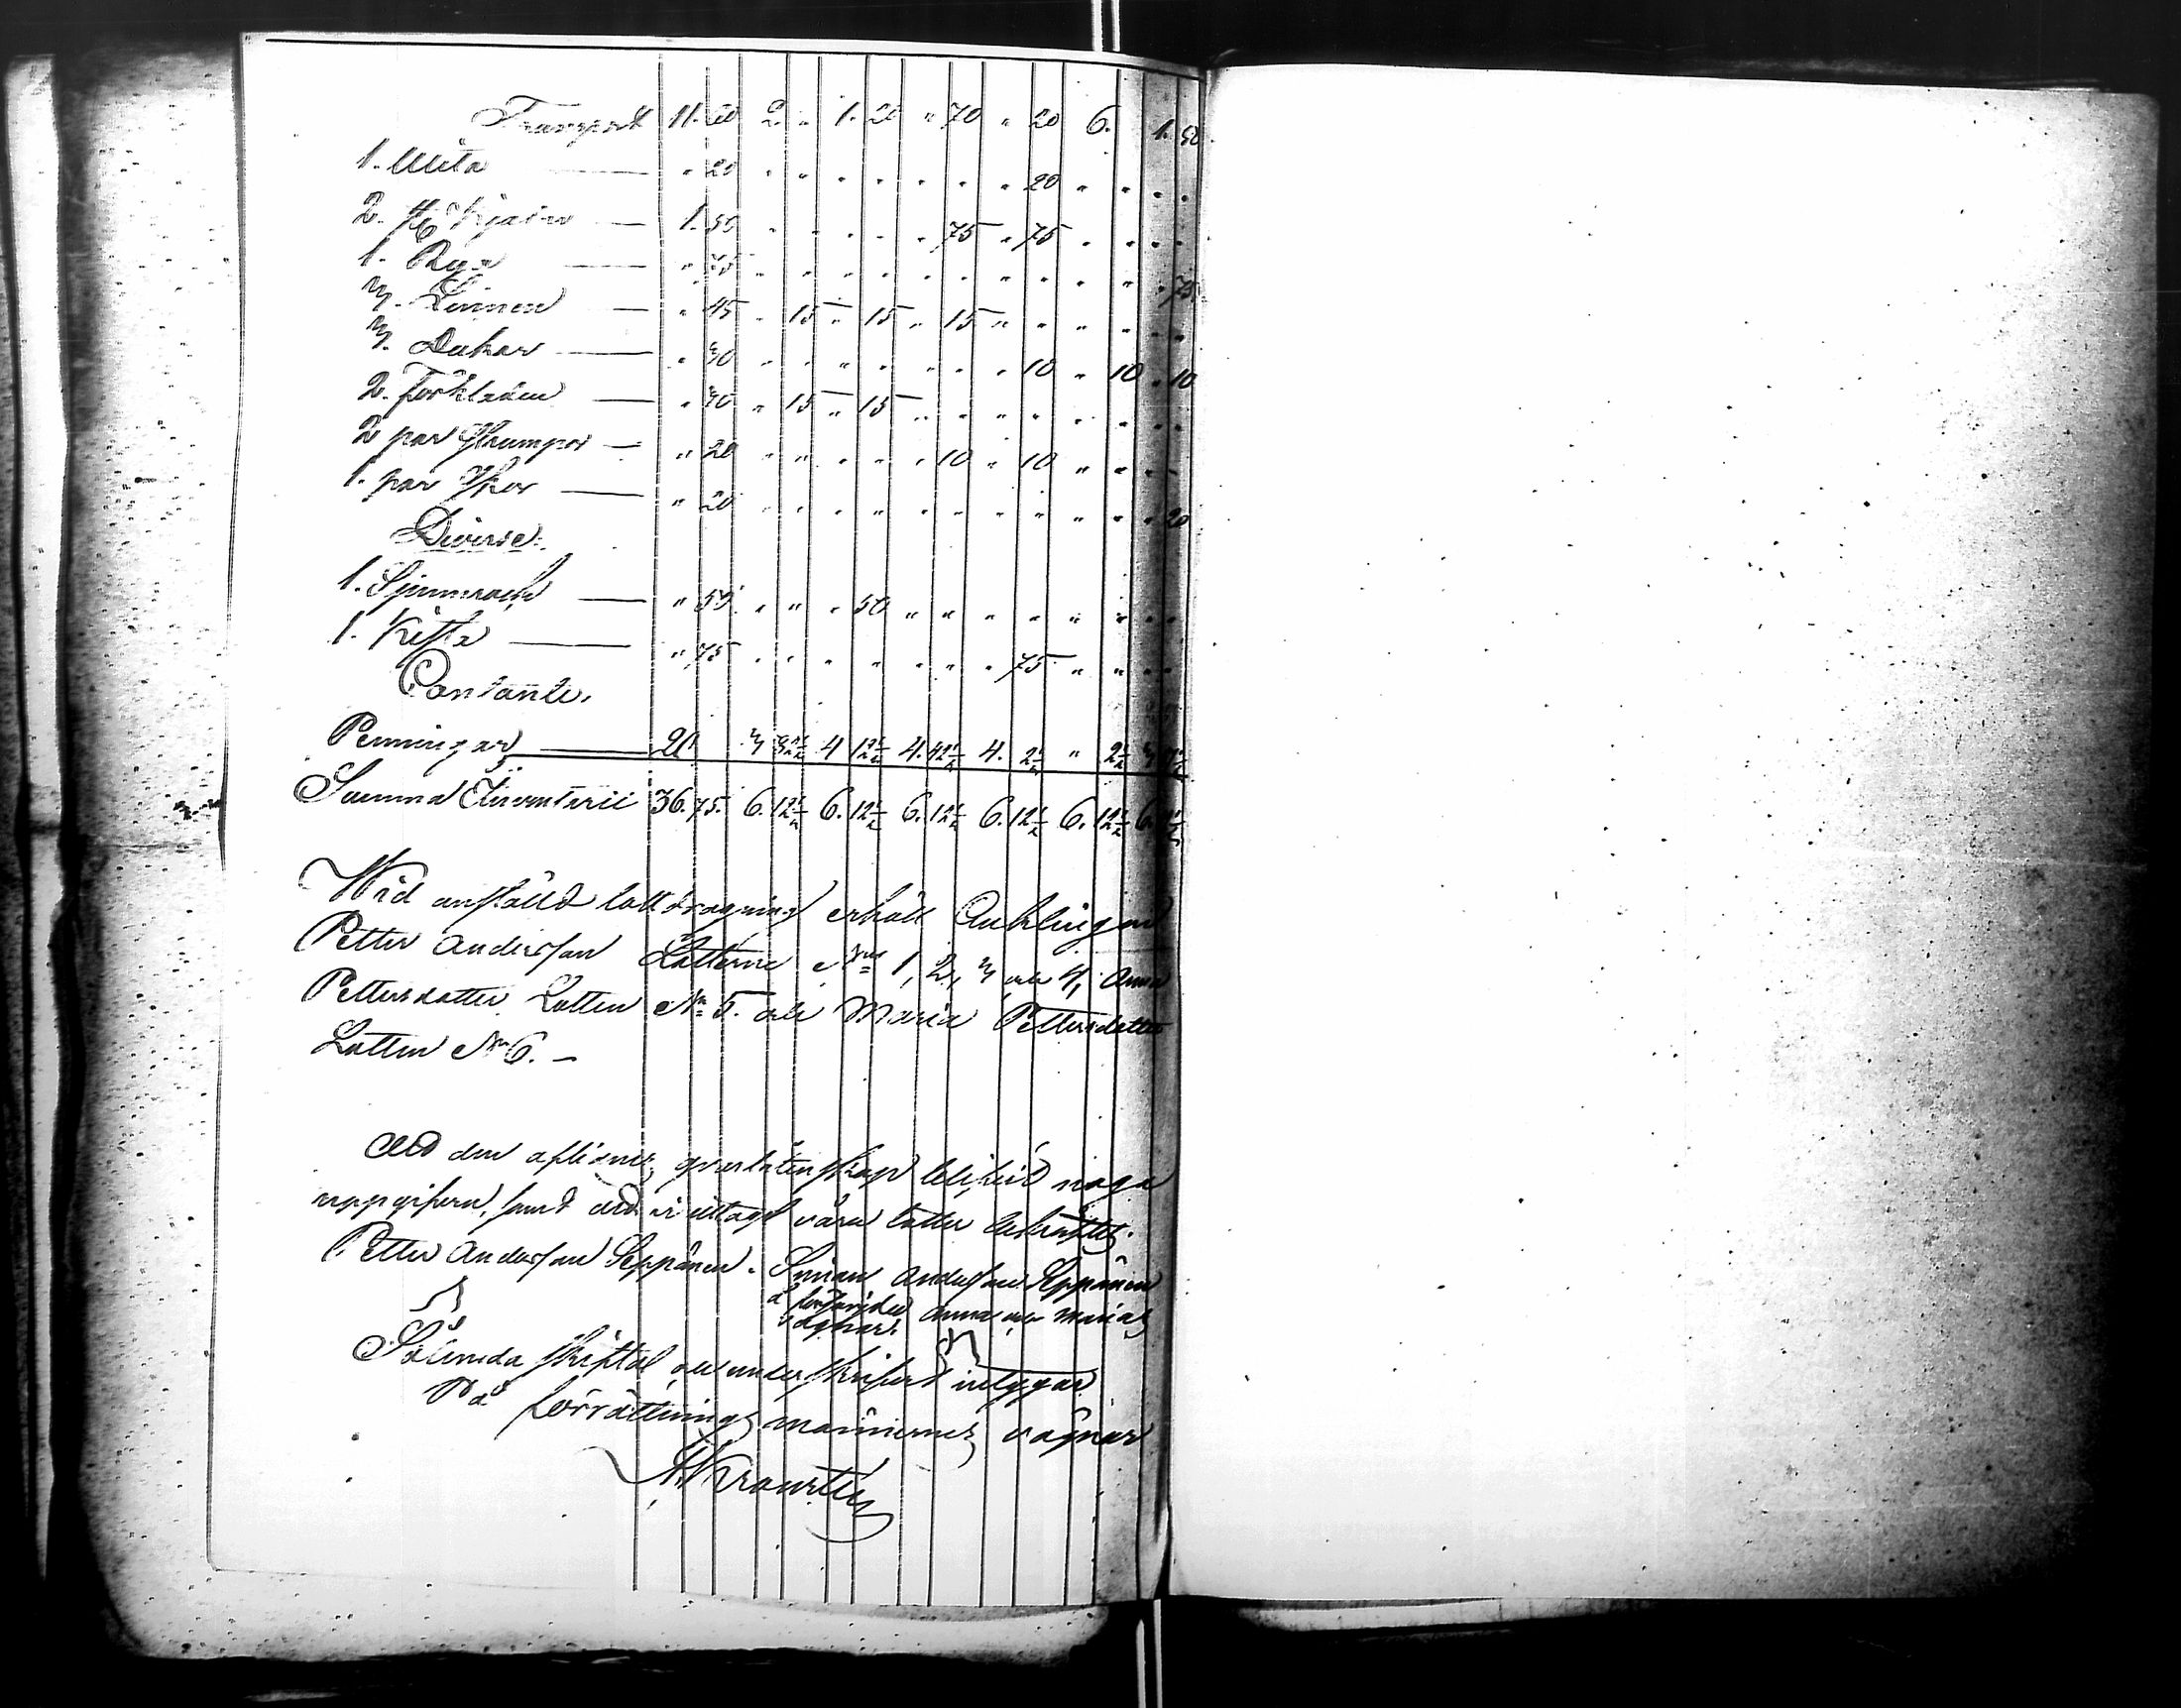 Transport 11. 60 2. " 1. 20 " 70 " 20 6. 1. 50
1. " 20 " " " " " " " 20 " " " "
2. 1. 50 " " " " " 75 " 75 " " " "
1. Rya " 75 " " " " " " " " " " " 75
3. Linnen " 45 " 15 " 15 " 15 " " " " " "
3. Dukar " 30 " " " " " " " 10 " 10 " 10
2. förkläden " 30 " 15 " 15 " " " " " " " "
2 par Strumpor " 20 " " " " " 10 " 10 " " " "
1. par Skor " 20 " " " " " " " " " " " 20
Diverse:
1. Spinnrock " 50 " " " 50 " " " " " " " "
1. Kista " 75 " " " " " " " 75 " " " "
Contante.
Penningar 20 3 82½ 4 12½ 4. 42½ 4. 2½ " 2½ 3
Summa Inventarii 36. 75. 6. 12½ 6. 12½ 6. 12½ 6. 12½ 6. 12½ 6. 12½
Wid anställd lottdragning erhöll
Petter Andersson Lotterne N: 1, 2, 3 och 4, Anna
Pettersdotter Lotten N: 5. och Maria Pettersdotter
Lotten N: 6. –
den aflidnes qvarlåtenskap blifvit noga
uppgifven, samt vi uttagit våra lotter bekräftas.
Petter Andersson Seppänen. Andersson Seppänen
Anna och Marias
vägnar.
Sålunda skiftat och underskrifvet intygar
På förrättningsmännernes vägnar